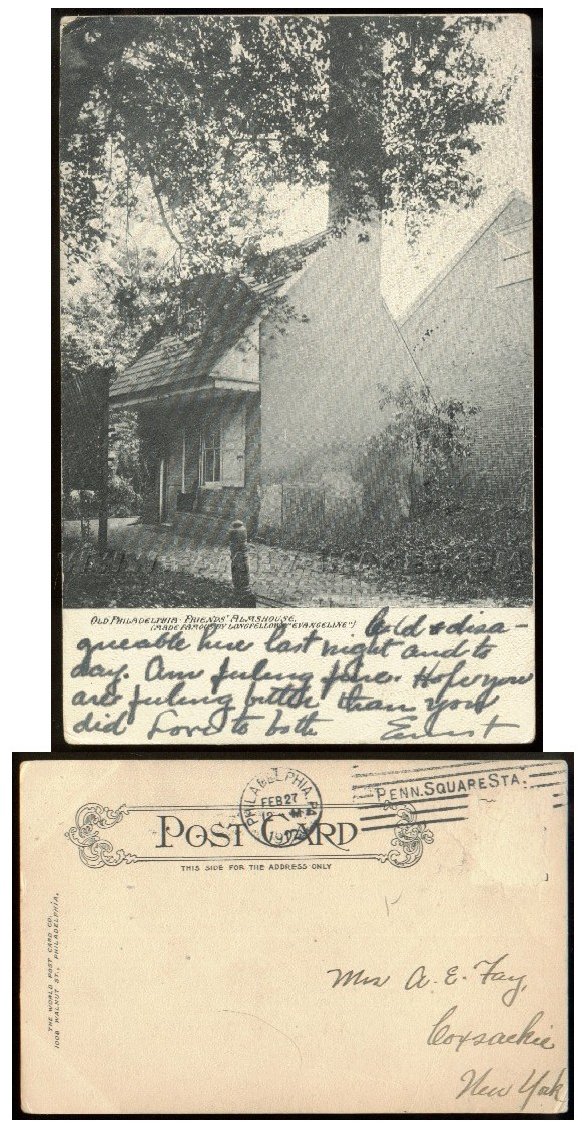 OLD PHILADELPHIA - FRIENDS' ALMSHOUSE.
(MADE FAMOUS BY LONGFELLOW'S "EVANGELINE")
Cold & disa-
greable here last night and to
day. Am feeling fine. Hope you
are feeling better than you
did Love to both Ernest
PHILADELPHIA, PA.
FEB 27
12 M
PENN. SQUARE STA.
POST CARD
THIS SIDE FOR THE ADDRESS ONLY
THE WORLD POST CARD CO.
1008 WALNUT ST., PHILADELPHIA.
Mrs A. E. Fay,
Coxsackie
New York